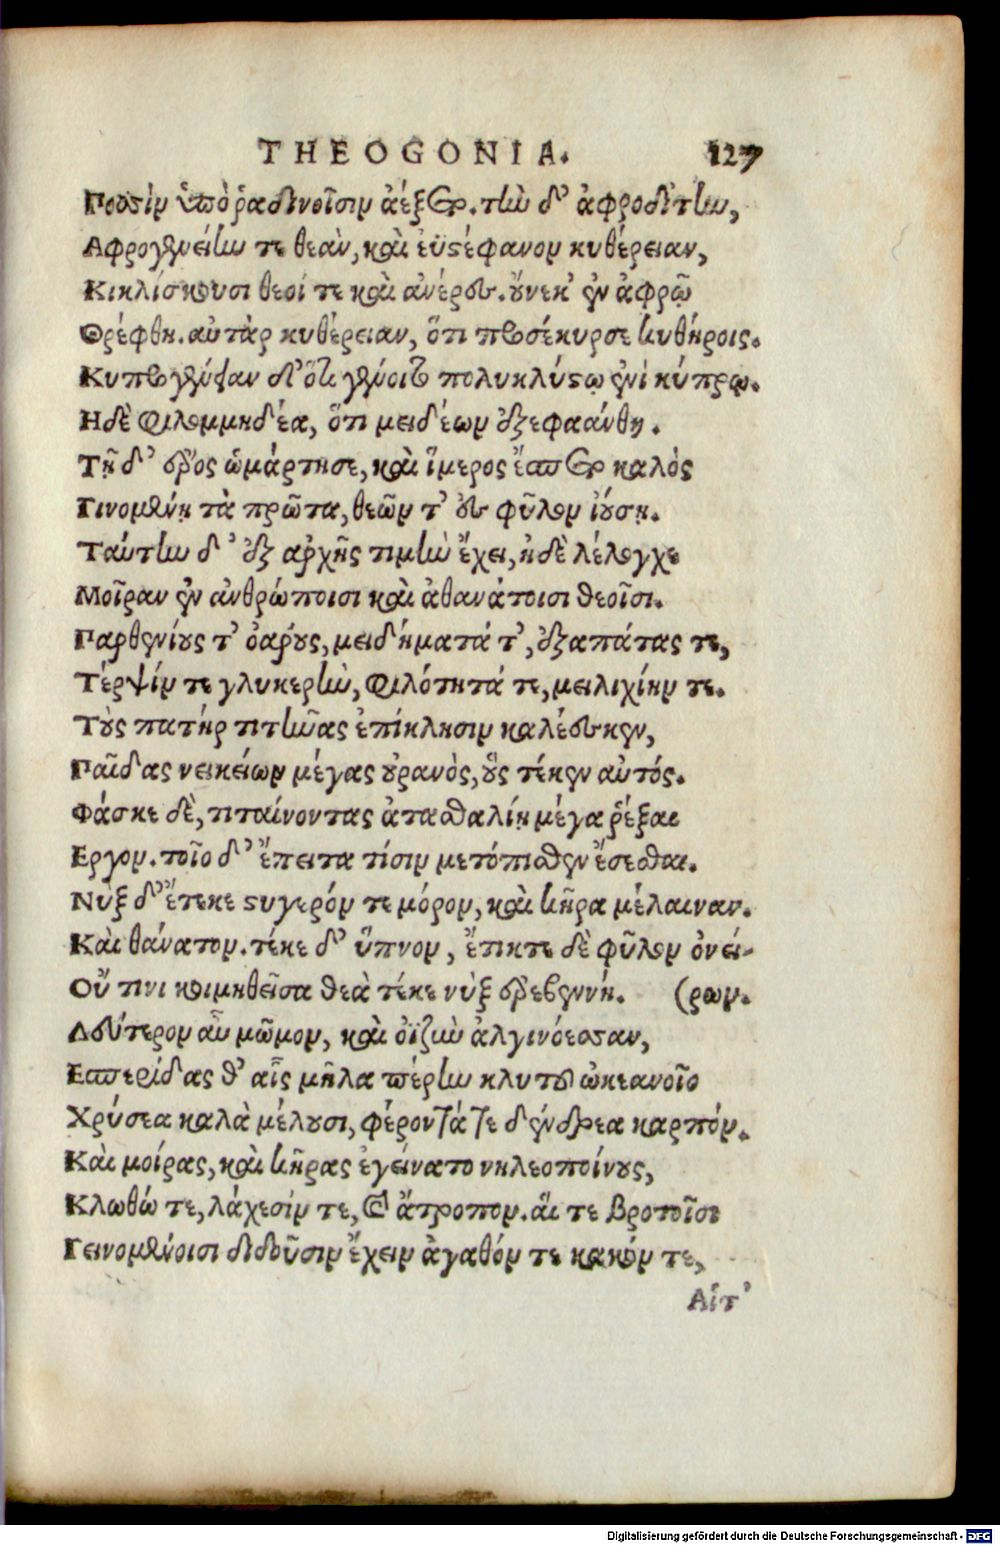 THEOGONIA. 127
Ποσσὶν ὑπὸ ῥαδινοῖσιν ἀέξετο. τὴν δ' ἀφροδίτην,
Αφρογενείην τε θεὰν, καὶ ἐϋστέφανον κυθέρειαν,
Κικλήσκουσι θεοί τε καὶ ἀνέρες. οὕνεκ' ἐν ἀφρῷ
Θρέφθη. αὐτὰρ κυθέρειαν, ὅτι προσέκυρσε κυθήροις.
Κυπρογενέαν δ' ὅτι γένοιτο πολυκλύστῳ ἐνὶ κύπρῳ.
Ηδὲ φιλομμηδέα, ὅτι μειδέων ἐξεφαάνθη.
Τῇ δ' ἔρος ὡμάρτησε, καὶ ἵμερος ἕσπετο καλὸς
Γινομένῃ τὰ πρῶτα, θεῶν τ' ἐς φῦλον ἰούσῃ.
Ταύτην δ' ἐξ ἀρχῆς τιμὴν ἔχει, ἠδὲ λέλογχε
Μοῖραν ἐν ἀνθρώποισι καὶ ἀθανάτοισι θεοῖσι.
Παρθενίους τ' ὀάρους, μειδήματά τ', ἐξαπάτας τε,
Τέρψίν τε γλυκερὴν, φιλότητά τε, μειλιχίην τε.
Τοὺς πατὴρ τιτῆνας ἐπίκλησιν καλέεσκεν,
Παῖδας νεικείων μέγας οὐρανὸς, οὓς τέκεν αὐτός.
Φάσκε δὲ, τιταίνοντας ἀτασθαλίῃ μέγα ῥέξαι
Εργον. τοῖο δ' ἔπειτα τίσιν μετόπισθεν ἔσεσθαι.
Νὺξ δ' ἔτεκε στυγερόν τε μόρον, καὶ κῆρα μέλαιναν.
Καὶ θάνατον. τέκε δ' ὕπνον, ἔτικτε δὲ φῦλον ὀνεί-
Οὔ τινι κοιμηθεῖσα θεὰ τέκε νὺξ ἐρεβεννή. (ρων.
Δεύτερον αὖ μῶμον, καὶ ὀϊζὺν ἀλγινόεσσαν,
Εσπερίδας θ' αἷς μῆλα πέρην κλυτοῦ ὠκεανοῖο
Χρύσεα καλὰ μέλουσι, φέροντά τε δένδρεα καρπόν.
Καὶ μοίρας, καὶ κῆρας ἐγείνατο νηλεοποίνους,
Κλωθώ τε, λάχεσίν τε, καὶ ἄτροπον. αἵ τε βροτοῖσι
Γεινομένοισι διδοῦσιν ἔχειν ἀγαθόν τε κακόν τε,
Αἵτ'
Digitalisierung gefördert durch die Deutsche Forschungsgemeinschaft - DFG